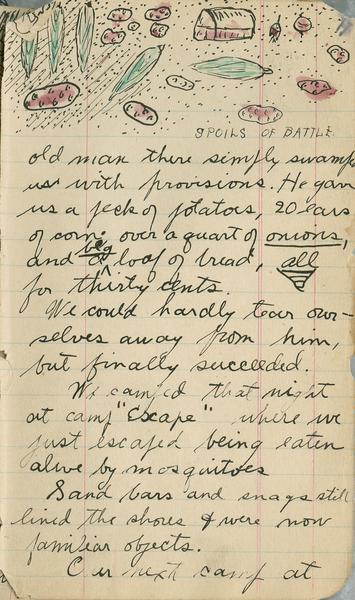 SPOILS OF BATTLE
old man there simply swamped
us with provisions. He gave
us a peck of potatoes, 20 ears
of corn, over a quart of onions,
and a big loaf of bread, all
for thirty cents.
We could hardly tear our-
selves away from him,
but finally succeeded.
We camped that night
at camp "Escape" where we
just escaped being eaten
alive by mosquitoes
Sand bars and snags still
lined the shores & were now
familiar objects.
Our next camp at